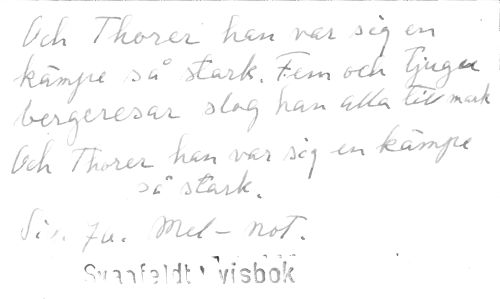 Och Thorer han var sig en
kämpe så stark. Fem och tjugu
bergeresar slog han alla till mark
Och Thorer han var sig en kämpe
så stark.
Mel - not.
Svanfeldts visbok